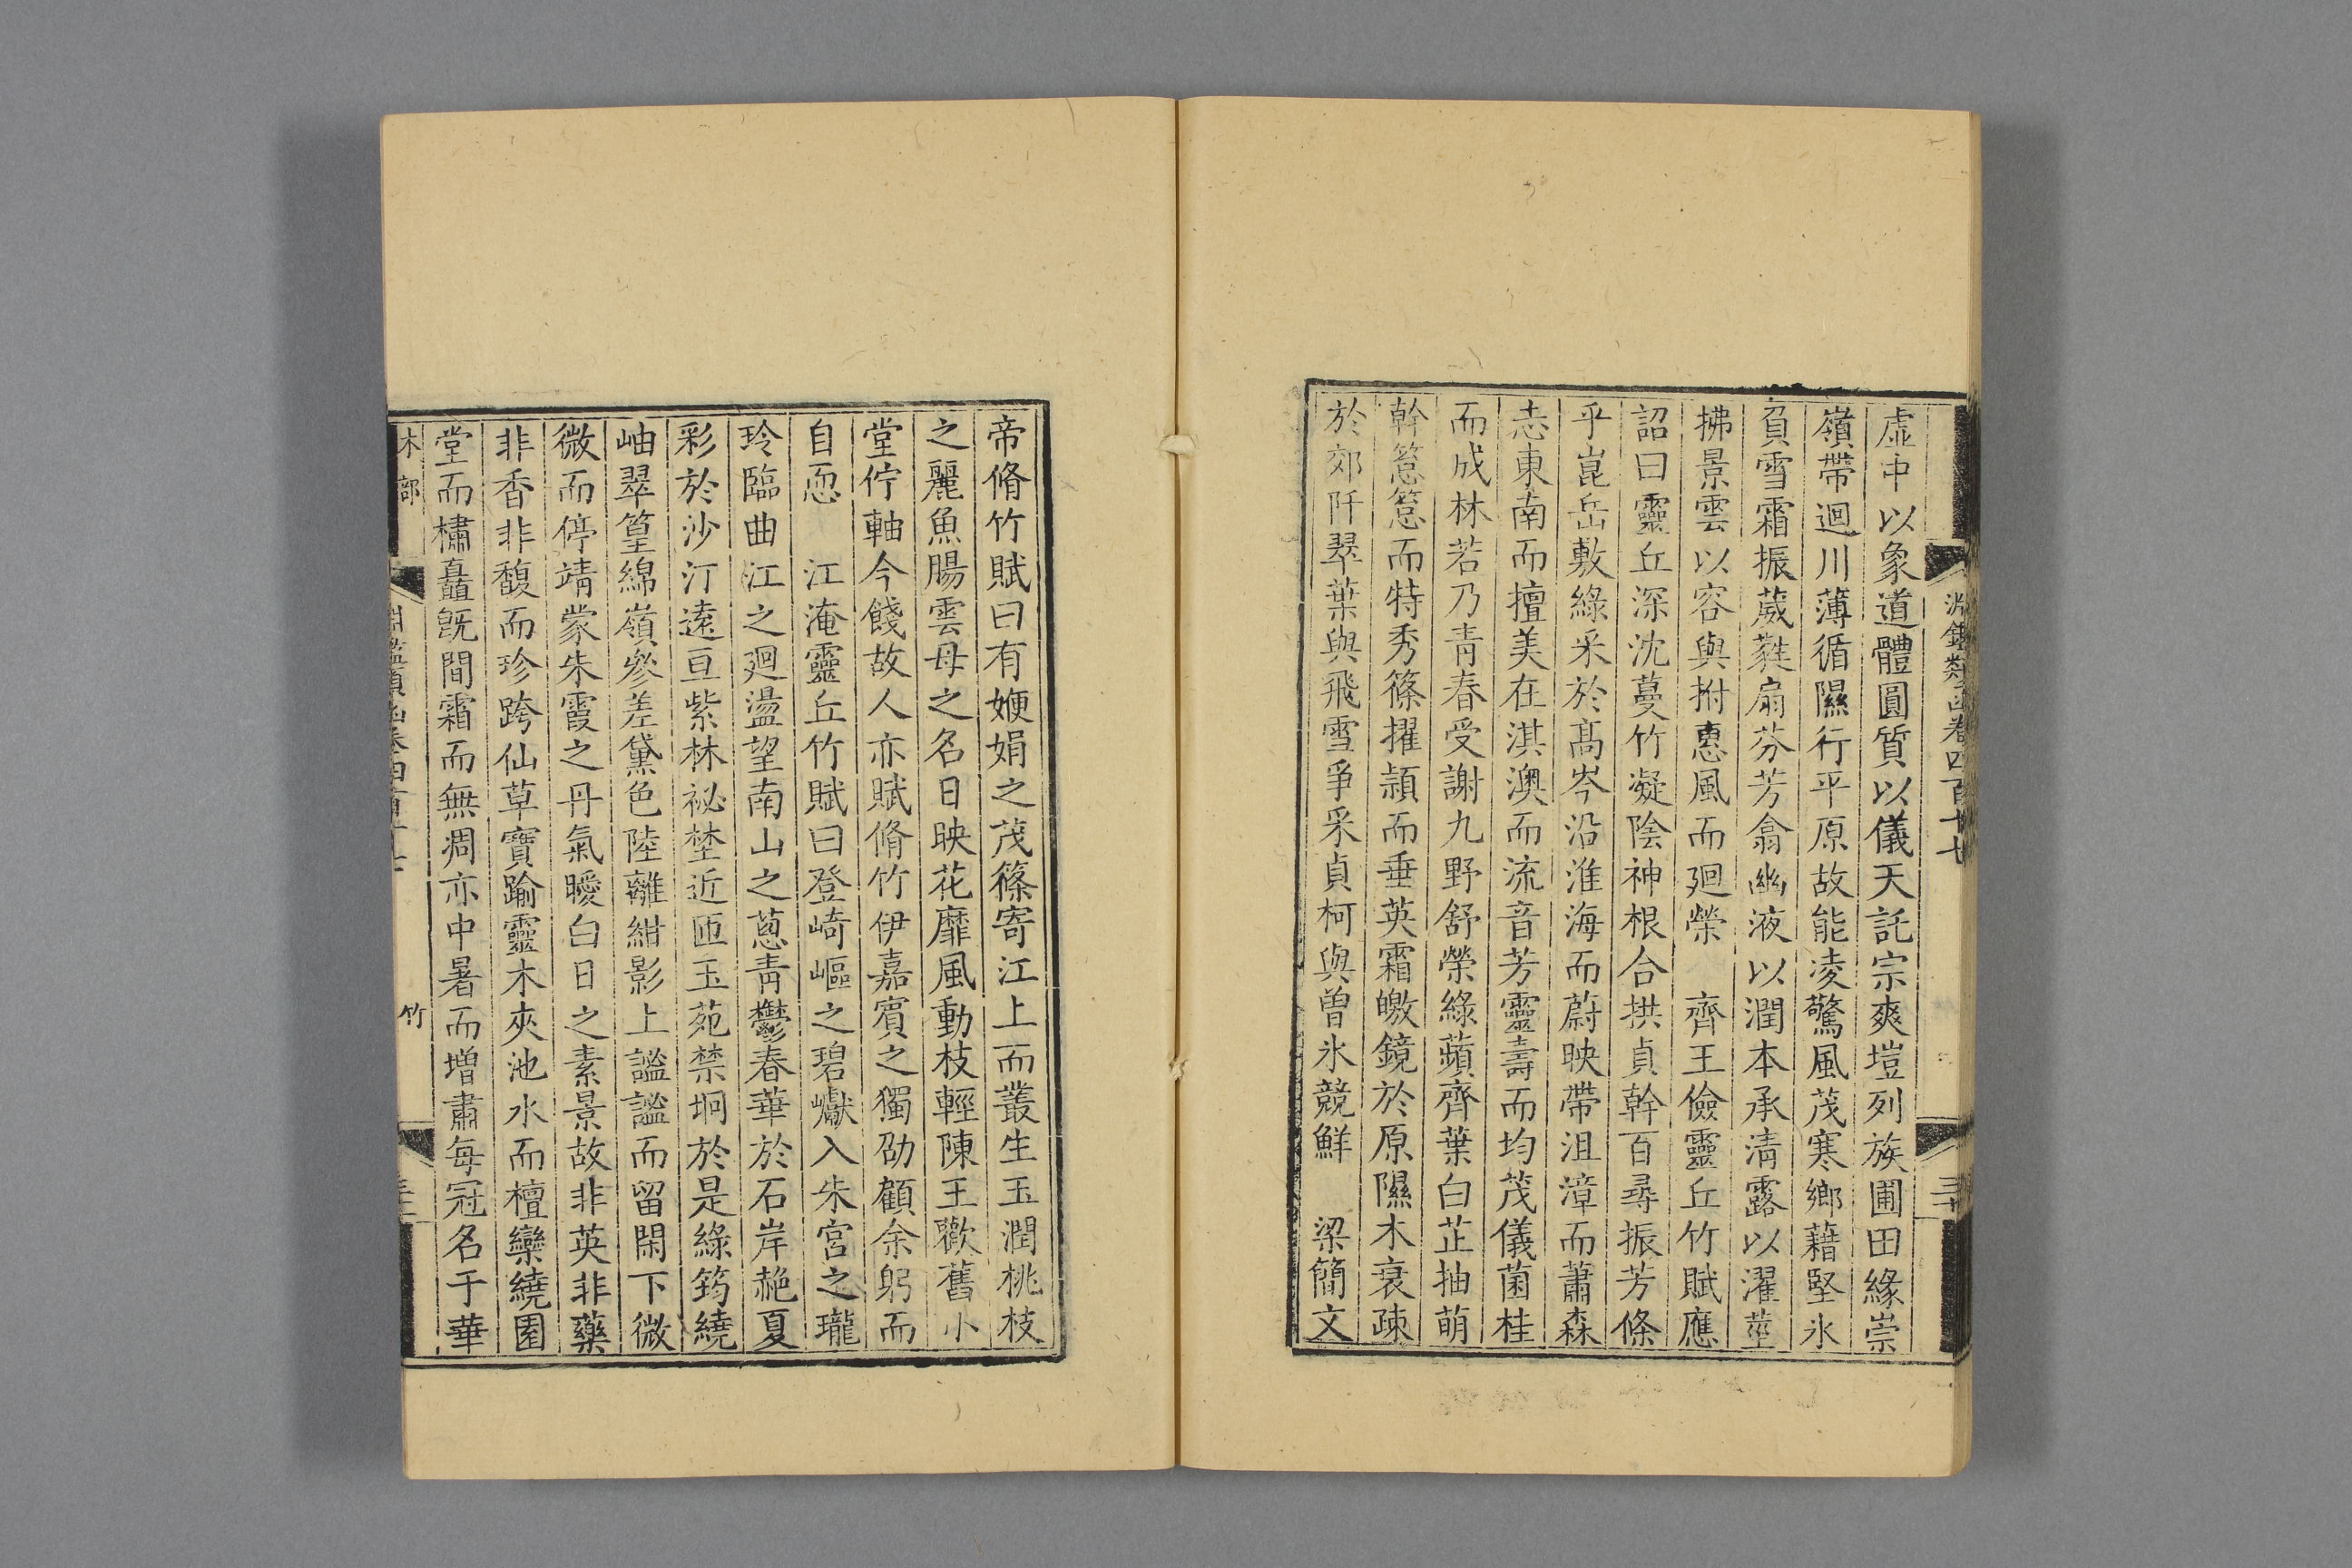 淵鑑類函卷四百十七
三十
虛中以象道體圓質以儀天託宗爽塏列族圃田緣崇
嶺帶迴川薄循隰行平原故能凌驚風茂寒鄉藉堅氷
負雪霜振葳蕤扇芬芳翕幽液以潤本承清露以濯莖
拂景雲以容與拊惠風而迴縈　齊王儉靈丘竹賦應
詔曰靈丘深沈蔓竹凝陰神根合拱貞幹百尋振芳條
乎崑岳敷綠采於高岑沿淮海而蔚映帶沮漳而蕭森
志東南而擅美在淇澳而流音芳靈壽而均茂儀菌桂
而成林若乃青春受謝九野舒榮綠蘋齊葉白芷抽萌
幹䓗䓗而特秀篠擢頴而垂英霜皦鏡於原隰木衰疎
於郊阡翠葉與飛雪爭采貞柯與曾氷競鮮　梁簡文
帝脩竹賦曰有娩娟之茂篠寄江上而叢生玉潤桃枝
之麗魚腸雲母之名日映花靡風動枝輕陳王歡舊小
堂佇軸今餞故人亦賦脩竹伊嘉賓之獨劭顧余躬而
自恧　江淹靈丘竹賦曰登崎嶇之碧巘入朱宮之瓏
玲臨曲江之迴盪望南山之蔥青鬱春華於石岸赩夏
彩於沙汀遠亘紫林祕埜近匝玉苑禁坰於是綠筠繞
岫翠篁綿嶺參差黛色陸離紺影上謐謐而留閑下微
微而停靖蒙朱霞之丹氣曖白日之素景故非英非藥
非香非馥而珍跨仙草寶踰靈木夾池水而檀欒繞園
堂而橚矗旣間霜而無凋亦中暑而增肅每冠名于華
木部
淵鑑類函卷四百十七
竹